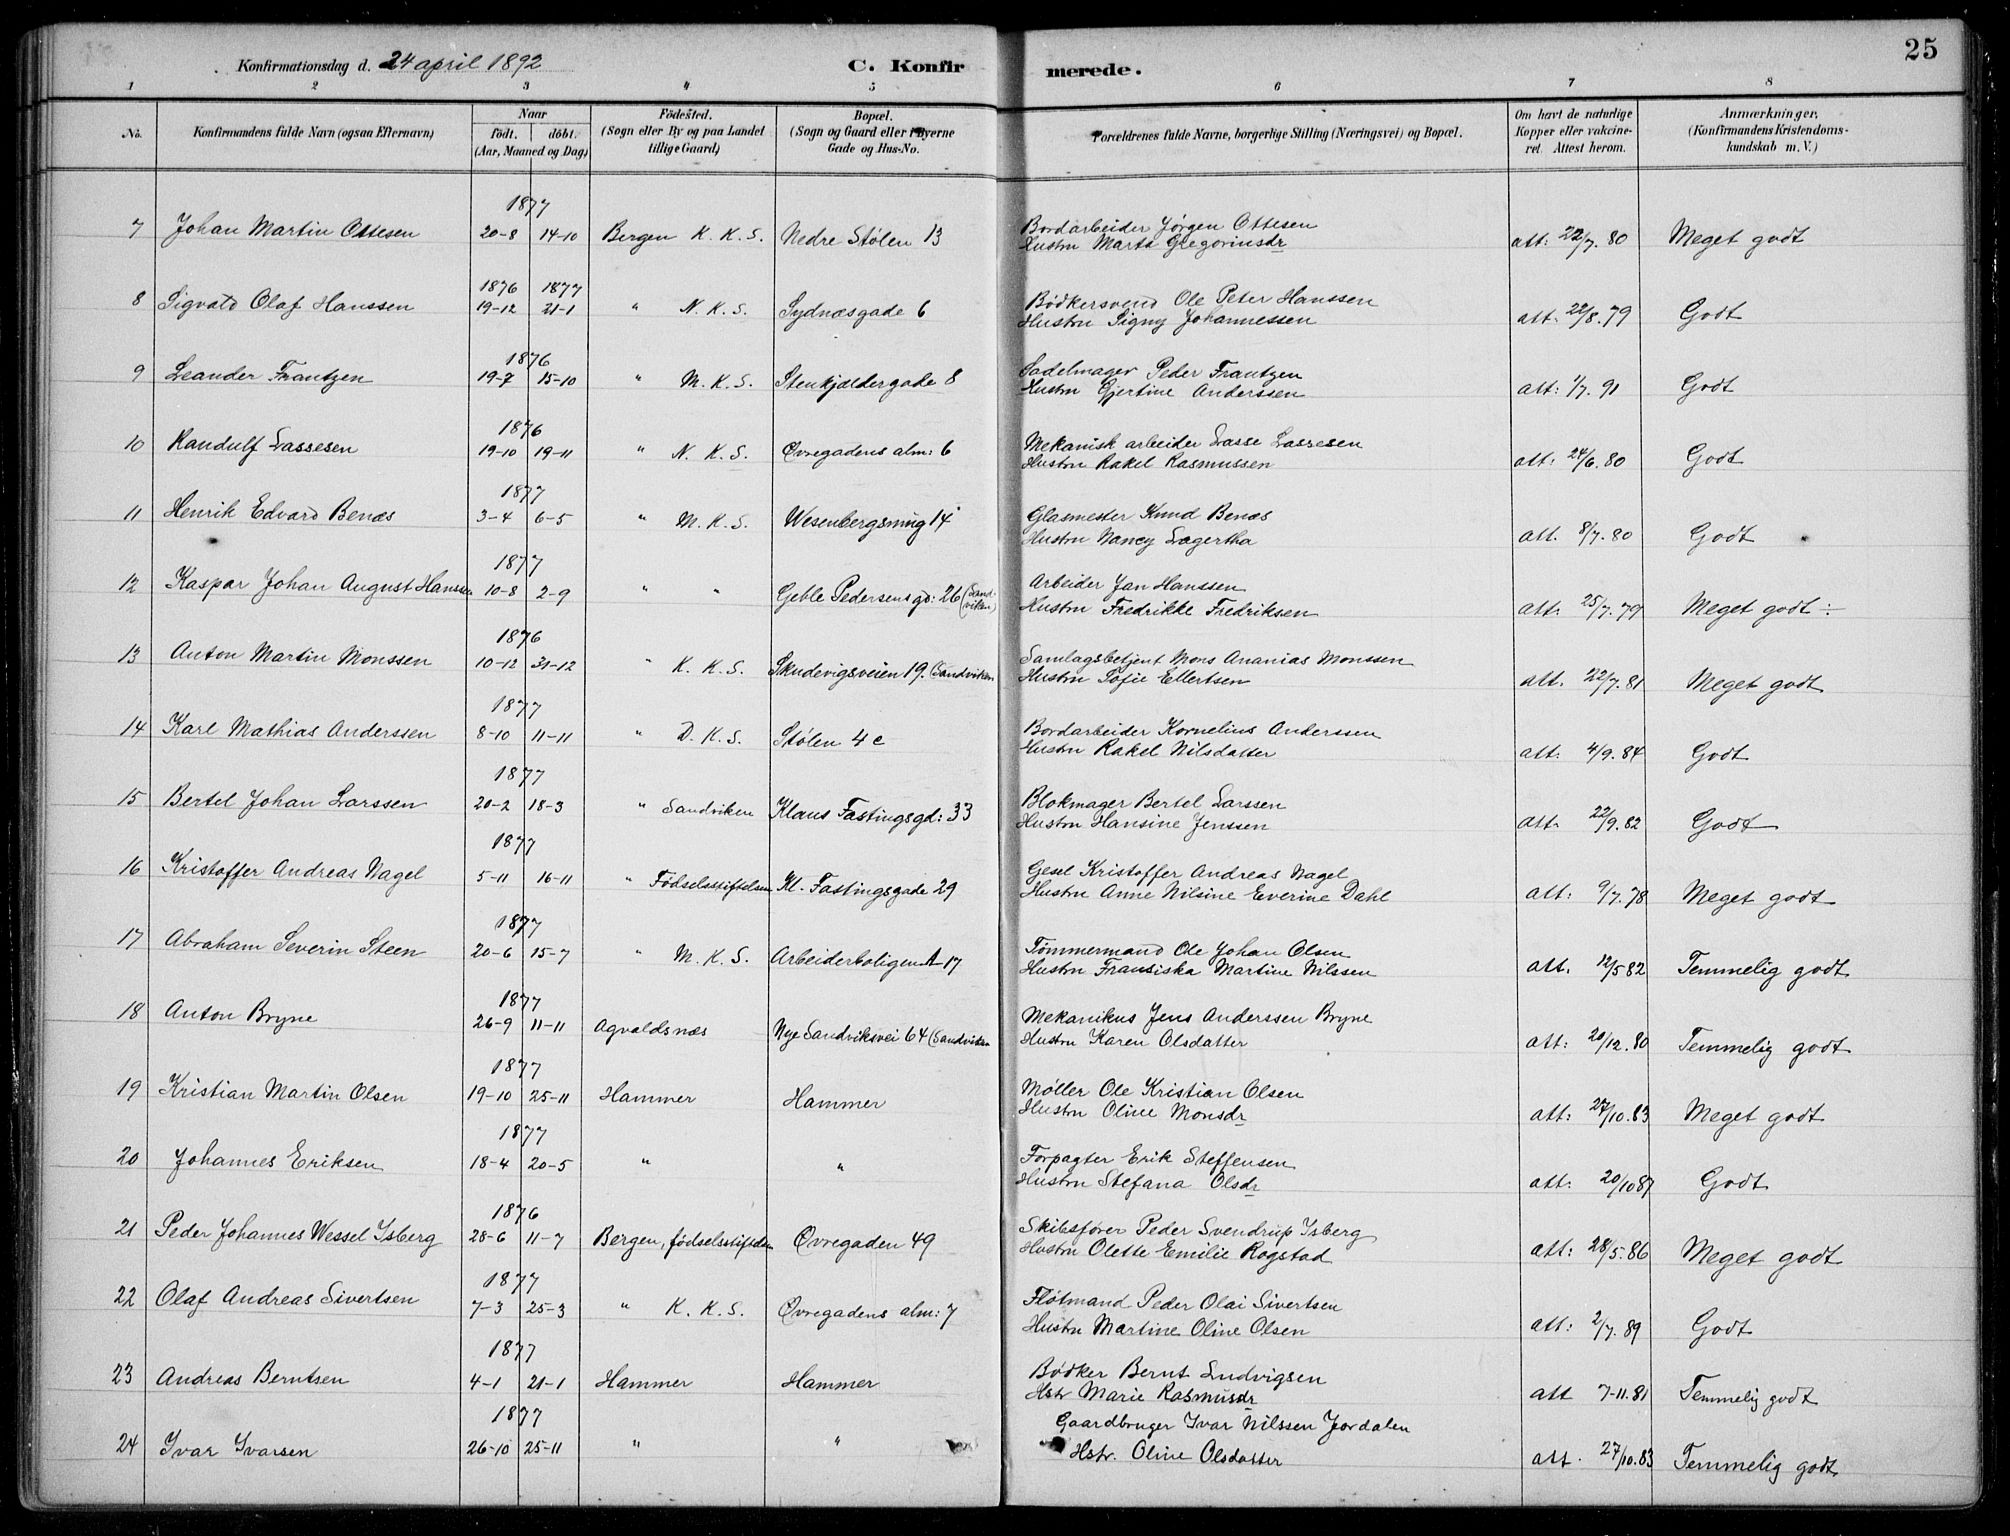 25
Konfirmationsdag d. 24 april 1892 C. Konfirmerede.
1 2 3 4 5 6 7 8
No. Konfirmandens fulde Navn (ogsaa Efternavn) Naar født. døbt. (Aar, Maaned og Dag) Fødested. (Sogn eller By og paa Landet tillige Gaard) Bopæl. (Sogn og Gaard eller i Byerne Gade og Hus-No. Forældrenes fulde Navne, borgerlige Stilling (Næringsvei) og Bopæl. Om havt de naturlige Kopper eller vakcineret. Attest herom. Anmærkninger. (Konfirmandens Kristendomskundskab m. V.)
1877
7 Johan Martin Ottesen 20-8 14-10 Bergen K. K. S. Nedre Stølen 13 Bordarbeider Jørgen Ottesen att: 22/7. 80 Meget godt
Hustru Marta Gregoriusdr
1876 1877
8 Sigvald Olaf Hanssen 19-12 21-1 " N. K. S. Sydnæsgade 6 Bødkersvend Ole Peter Hanssen att: 22/8. 79 Godt
Hustru Signy Johannessen
1876
9 Leander Frantzen 19-7 15-10 " M. K. S. Stenkjældergade 8 Sadelmager Peder Frantzen att: 1/7. 91 Godt
Hustru Gjertine Anderssen
1876
10 Randulf Lassesen 19-10 19-11 " N. K. S. Øvregadens alm: 6 Mekanisk arbeider Lasse Lassesen att: 24/6. 80 Godt
Hustru Rakel Rasmussen
1877
11 Henrik Edvard Benæs 3-4 6-5 " M. K. S. Wesenbergsmug 14 Glasmester Knud Benæs att. 8/7. 80 Godt
Hustru Nancy Lagertha
1877
12 Kaspar Johan August Hanssen 10-8 2-9 " " Geble Pedersens gd: 26 (Sandviken) Arbeider Jan Hanssen att. 25/7. 79 Meget godt ÷
Hustru Fredrikke Fredriksen
1876
13 Anton Martin Monssen 10-12 31-12 " K. K. S. Skudevigsveien 19. (Sandviken Samlagsbetjent Mons Ananias Monssen att. 22/7. 81 Meget godt
Hustru Sofie Ellertsen
1877
14 Karl Mathias Anderssen 8-10 11-11 " D. K. S. Stølen 4 c Bordarbeider Kornelius Anderssen att. 4/9. 84 Godt
Hustru Rakel Nilsdatter
1877
15 Bertel Johan Larssen 20-2 18-3 " Sandviken Klaus Fastingsgd: 33 Blokmager Bertel Larssen att. 22/9. 82 Godt
Hustru Hansine Jenssen
1877
16 Kristoffer Andreas Nagel 5-11 16-11 " Fødselsstiftelsen Kl. Fastingsgade 29 Gesel Kristoffer Andreas Nagel att: 9/7. 78 Meget godt
Hustru Anne Nilsine Everine Dahl
1877
17 Abraham Severin Steen 20-6 15-7 " M. K. S. Arbeiderboligen A 17 Tømmermand Ole Johan Olsen att. 12/5 82 Temmelig godt
Hustru Fransiska Martine Nilssen
1877
18 Anton Bryne 26-9 11-11 Agvaldsnæs Nye Sandviksvei 64 (Sandviken Mekanikus Jens Anderssen Bryne att: 20/12. 80 Temmelig godt
Hustru Karen Olsdatter
1877
19 Kristian Martin Olsen 19-10 25-11 Hammer Hammer Møller Ole Kristian Olsen att: 27/10. 83 Meget godt
Hustru Oline Monsdr
1877
20 Johannes Eriksen 18-4 20-5 " " Forpagter Erik Steffensen att. 20/10 87 Godt
Hustru Stefana Olsdr
1876
21 Peder Johannes Wessel Isberg 28-6 11-7 Bergen, fødselsstiftelsen Øvregaden 49 Skibsfører Peder Svendrup Isberg att: 28/5. 86 Meget godt
Hustru Olette Emilie Rogstad
1877
22 Olaf Andreas Sivertsen 7-3 25-3 " K. K. S. Øvregadens alm: 7 Fløtmand Peder Olai Sivertsen att: 2/7. 89 Godt
Hustru Martine Oline Olsen
1877
23 Andreas Berntsen 4-1 21-1 Hammer Hammer Bødker Bernt Ludvigsen att 7-11. 81 Temmelig godt
Hstr Marie Rasmusdr
1877
24 Ivar Ivarsen 26-10 25-11 " " Gaardbruger Ivar Nilssen Jordalen att. 27/10. 83 Temmelig godt
Hstr. Oline Olsdatter